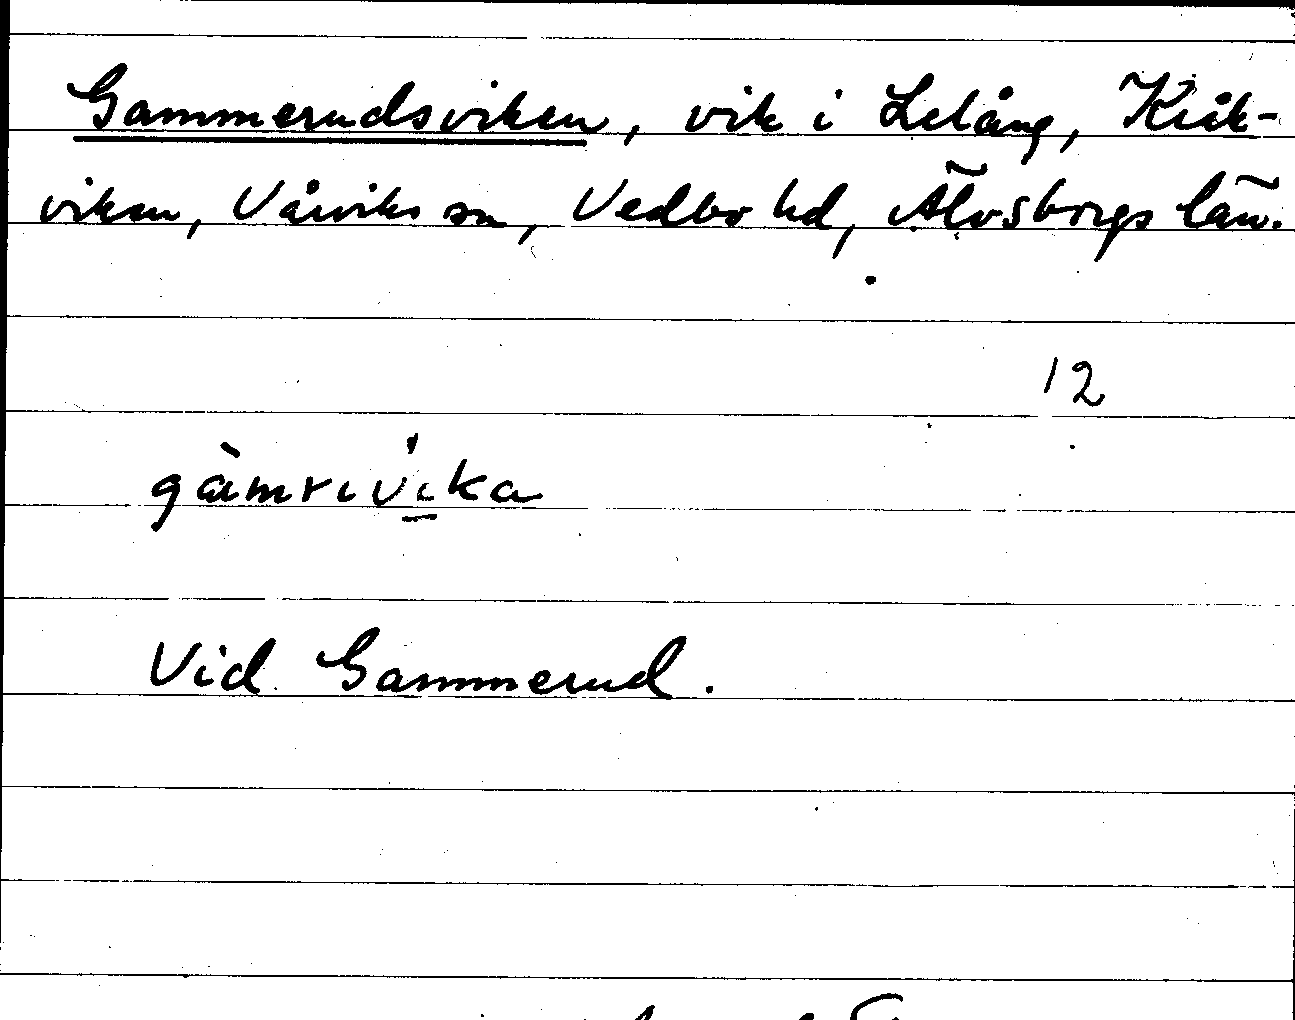 Gammerudsviken, vik i Lelång, Kråk-
viken, Vårviks sn, Vedbo hd, Älvsborgs län.
12
gàmrivíka
Vid Gammerud.